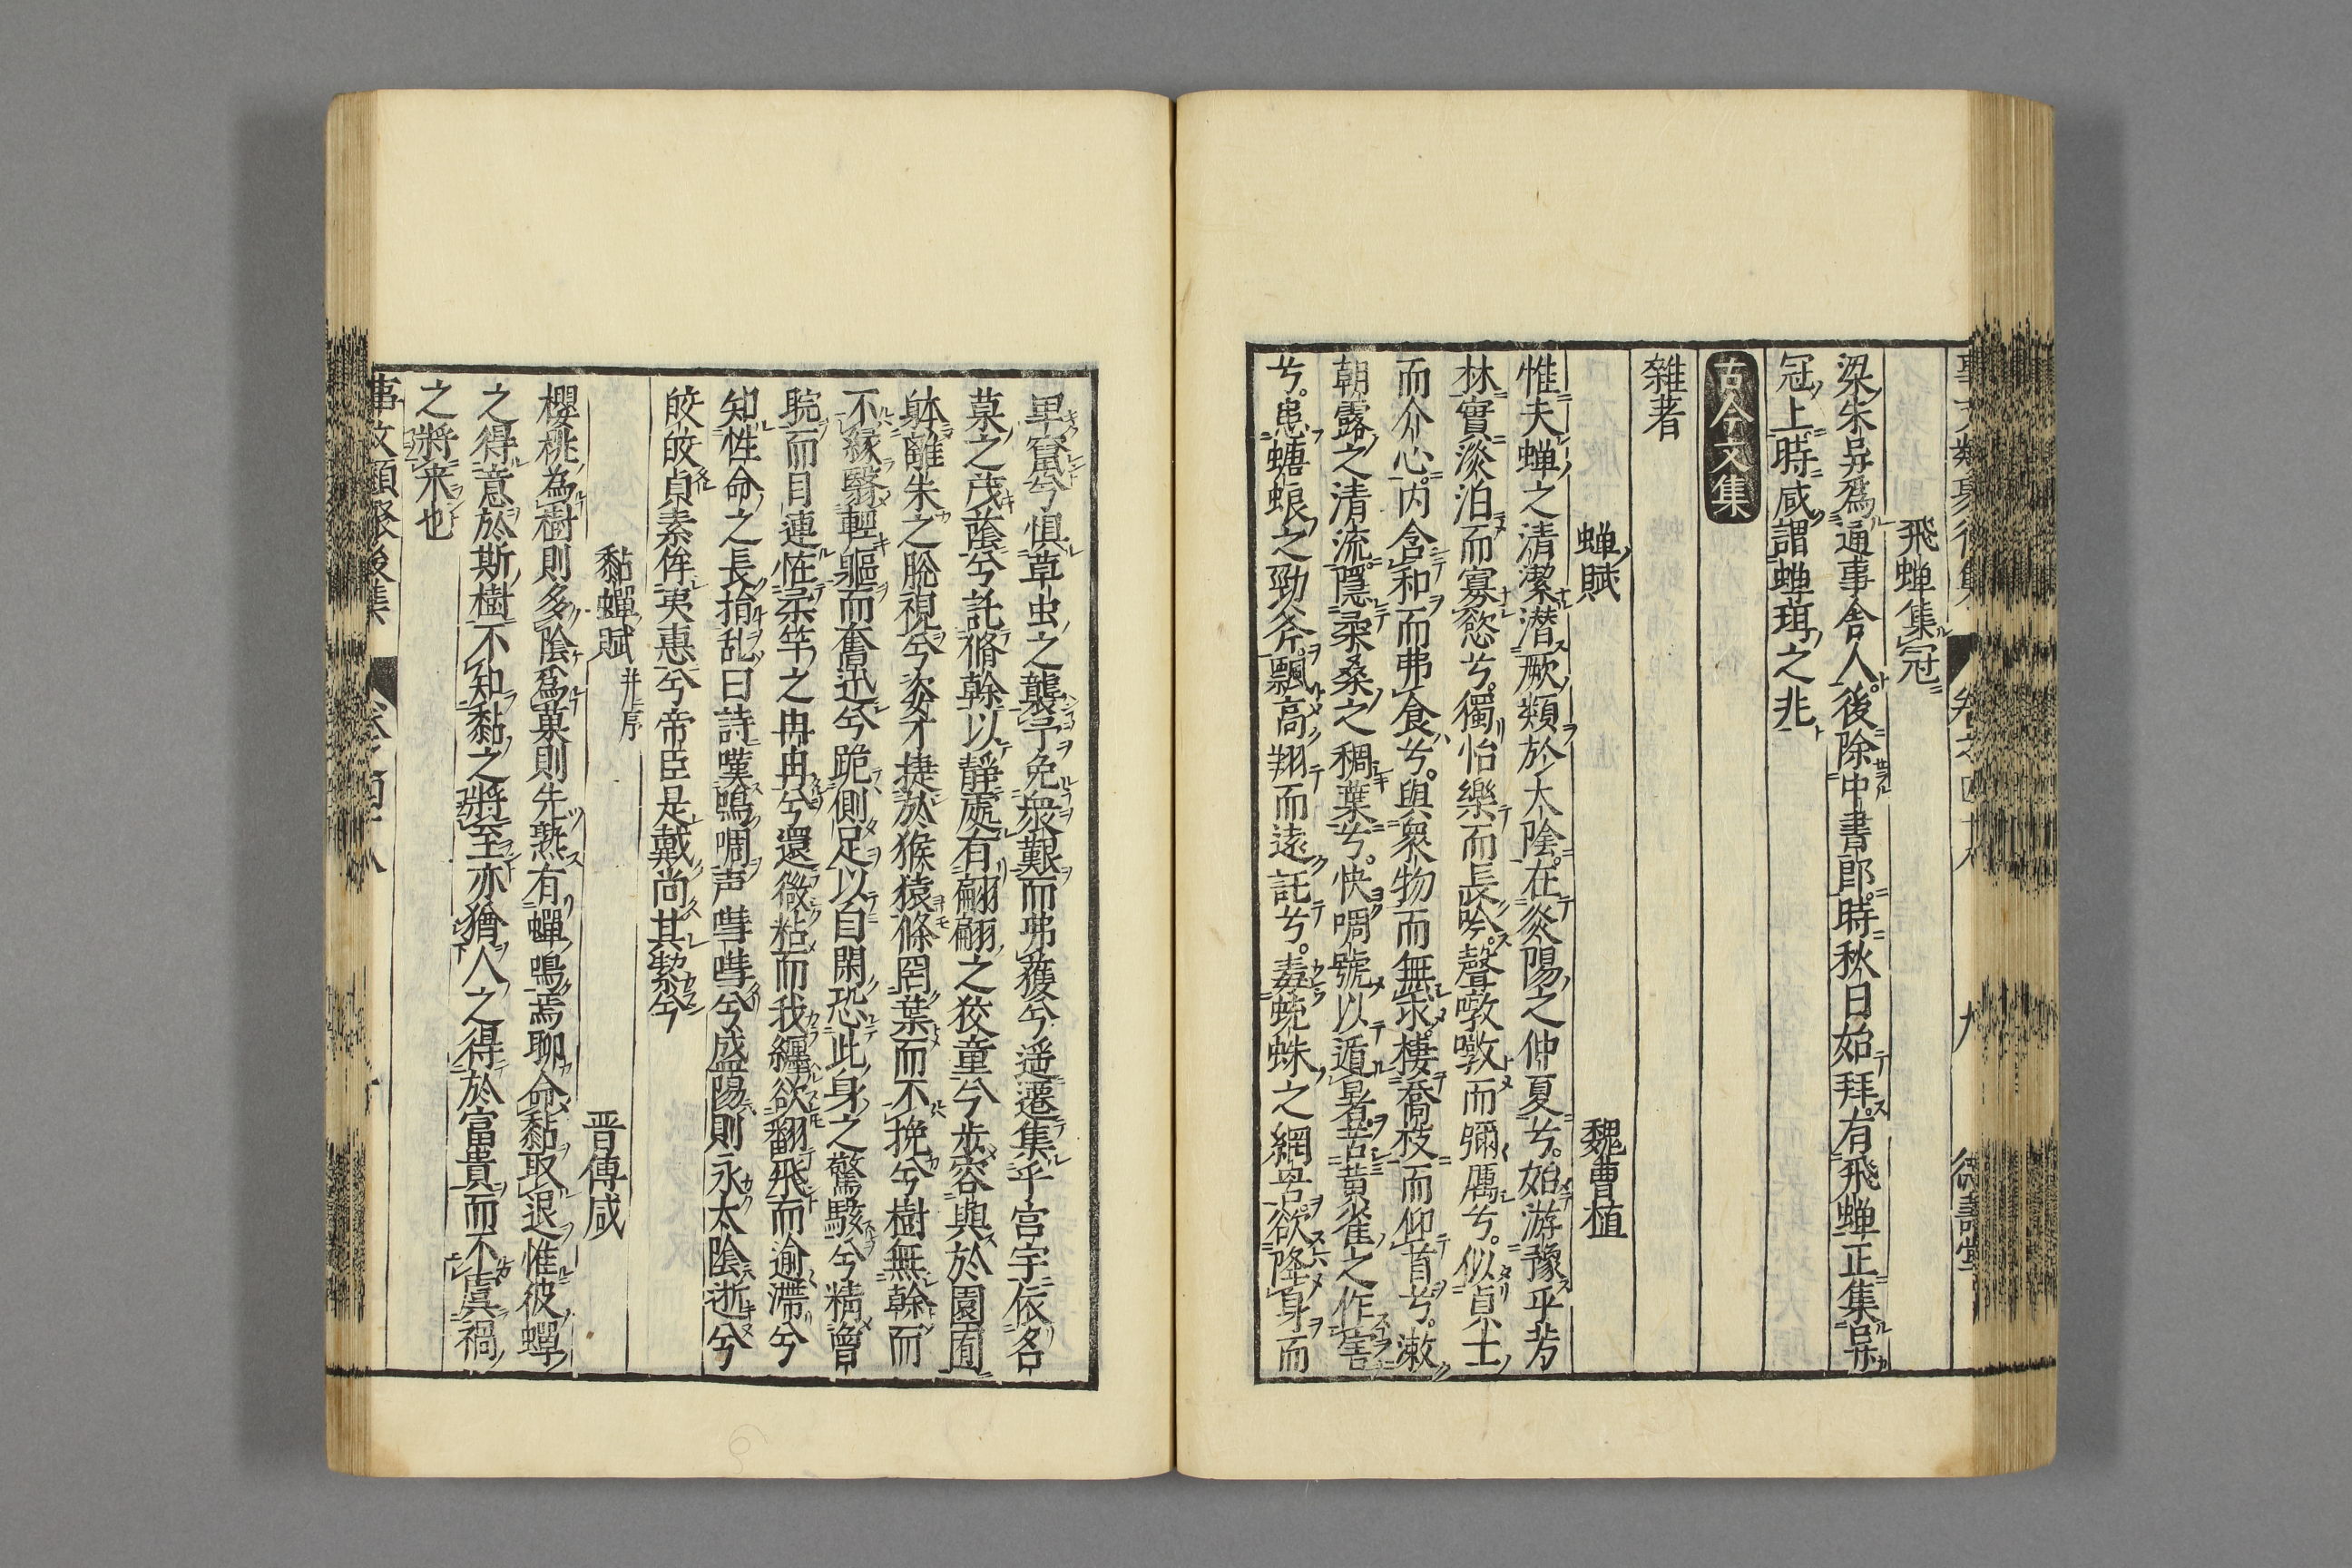 飛蝉集冠
梁朱异爲通事舎人後除中書郎時秋日始拜有飛蝉正集异
冠上時咸謂蝉珥之兆
古今文集
雜著
蝉賦 魏曹植
惟夫蝉之清潔潜厥類於太陰在炎陽之仲夏兮始游豫乎芳
林實淡泊而寡慾兮獨怡樂而長吟聲噭噭而彌厲兮似貞士
而介心内含和而弗食兮與衆物而無求棲喬枝而仰首兮漱
朝露之清流隱柔桑之稠葉兮快啁號以遁暑苦黄雀之作害
兮患螗蜋之勁斧飄高翔而遠託兮毒蜘蛛之網罟欲降身而
卑竄兮惧草虫之襲予免衆艱而弗獲兮遥遷集乎宫宇依名
菓之茂蔭兮託脩幹以靜處有翩翩之狡童兮歩容與於園圃
躰離朱之聡視兮姿才捷於猴猿條罔葉而不挽兮樹無幹而
不縁翳輕軀而奮迅兮跪側足以自閑恐此身之驚駭兮精曽
睆而目連恠柔竿之冉冉兮還微粘而我纒欲翻飛而逾滯兮
知性命之長捐乱曰詩嘆鳴啁声嘒嘒兮盛陽則永太陰逝兮
皎皎貞素侔夷惠兮帝臣是戴尚其潔兮
黏蟬賦并序 晋傅咸
櫻桃為樹則多陰爲菓則先熟有蟬鳴焉聊命黏取退惟彼蟬
之得意於斯樹不知黏之將至亦猶人之得於富貴而不虞禍
之將来也
事文類聚後集